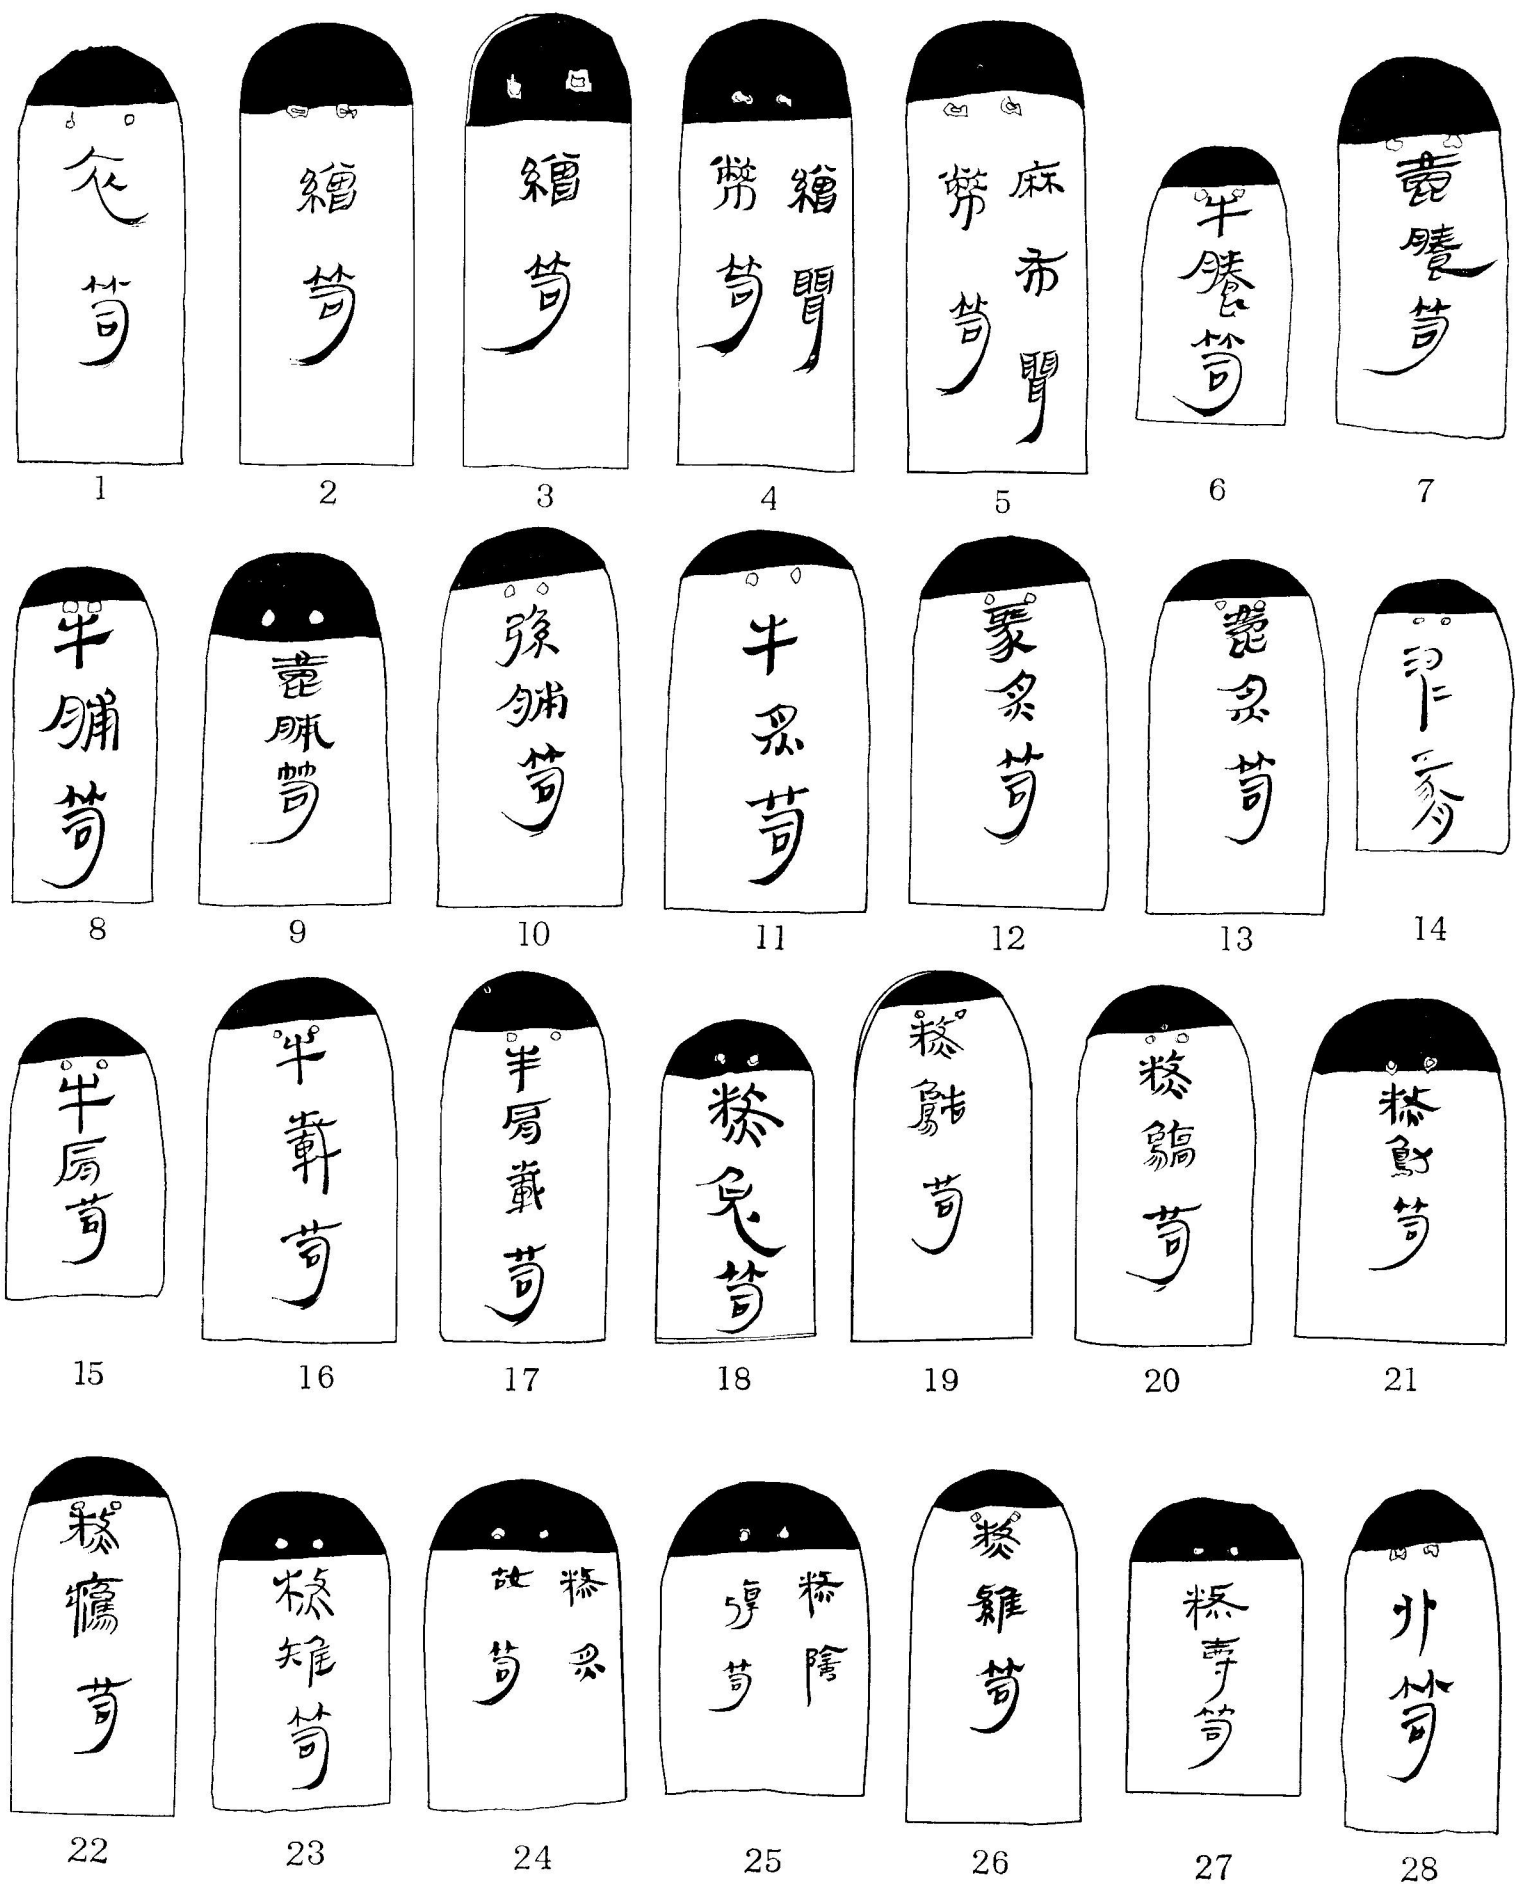 衣笥
1
繒笥
2
繒笥
3
繒聶
幣笥
4
麻布聶
幣笥
5
牛笥
6
鹿笥
7
牛脯笥
8
鹿脯笥
9
弦脯笥
10
牛炙笥
11
炙笥
12
鹿炙笥
13
14
牛肩笥
15
牛載笥
16
羊肩載笥
17
熬兔笥
18
熬鵠笥
19
熬鶴笥
20
熬笥
21
熬笥
22
熬雉笥
23
熬炙
姑笥
24
熬陰
鶉笥
25
熬雞笥
26
熬笥
27
卵笥
28